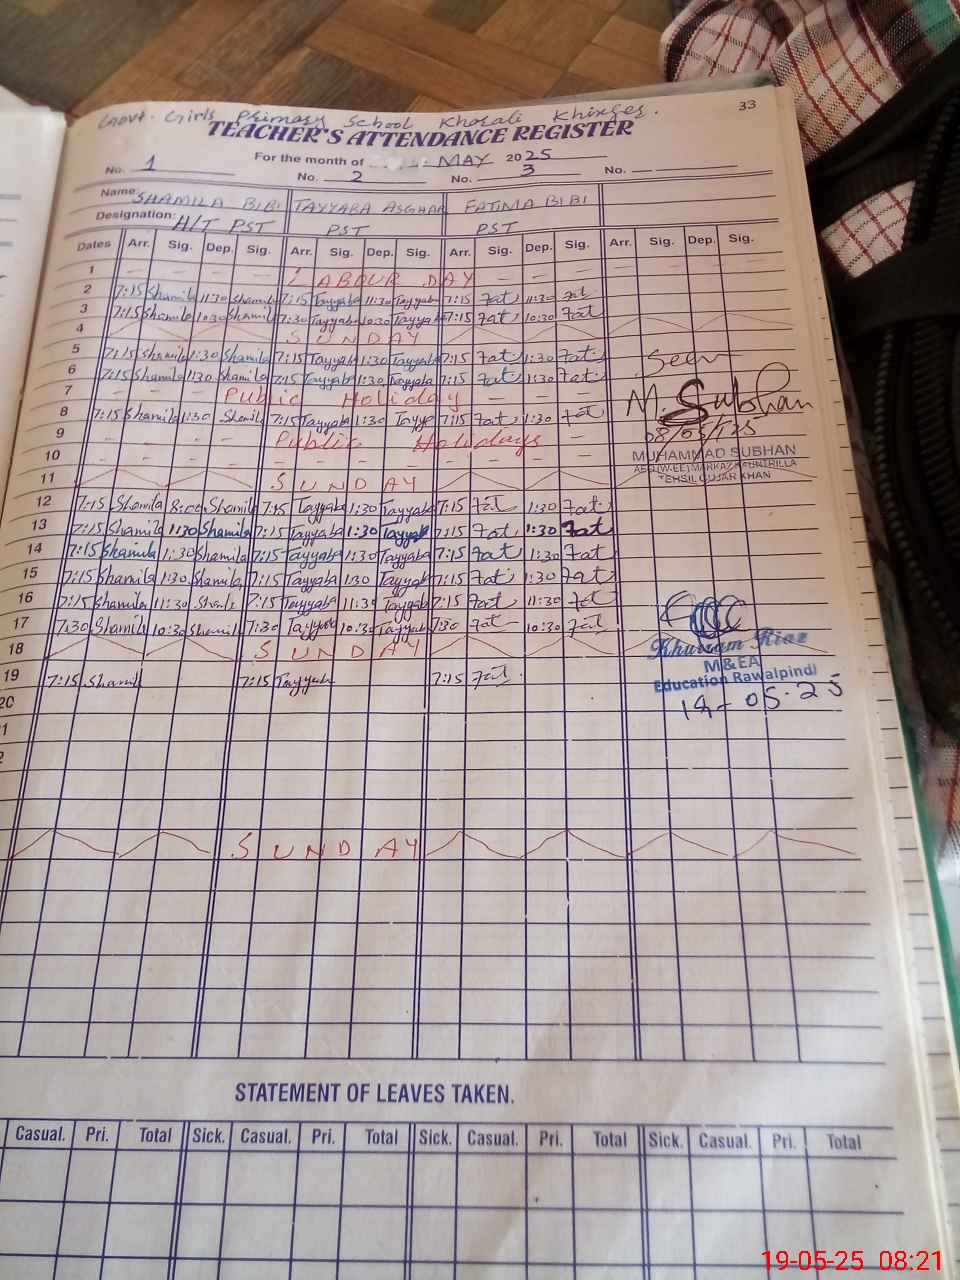 33
Govt. Girls Primary School Khosali Khinger.
TEACHER'S ATTENDANCE REGISTER
For the month of MAY 2025
No. 1 No. 2 No. 3 No.
Name: SHAMILA BIBI TAYYABA ASGHAR FATIMA BIBI
Designation: H/T PST PST PST
Dates Arr. Sig. Dep. Sig. Arr. Sig. Dep. Sig. Arr. Sig. Dep. Sig. Arr. Sig. Dep. Sig.
1 LABOUR DAY
2 7:15 Shamila 11:30 Shamila 7:15 Tayyaba 11:30 Tayyaba 7:15 Fat 11:30 Fat
3 7:15 Shamila 10:30 Shamila 7:30 Tayyaba 10:30 Tayyaba 7:15 Fat 10:30 Fat
4 SUNDAY
5 7:15 Shamila 1:30 Shamila 7:15 Tayyaba 1:30 Tayyaba 7:15 Fat 1:30 Fat
Seen
6 7:15 Shamila 1:30 Shamila 7:15 Tayyaba 1:30 Tayyaba 7:15 Fat 1:30 Fat
7 Public Holiday
M. Subhan
8 7:15 Shamila 1:30 Shamila 7:15 Tayyaba 1:30 Tayya 7:15 Fat 1:30 Fat
08/05/025
9 Public Holidays
MUHAMMAD SUBHAN
10
AEO (W.EE) MARKAZ
TEHSIL GUJAR KHAN
11 SUNDAY
12 7:15 Shamila 8:00 Shamila 7:15 Tayyaba 1:30 Tayyaba 7:15 Fat 1:30 Fat
13 7:15 Shamila 1:30 Shamila 7:15 Tayyaba 1:30 Tayyab 7:15 Fat 1:30 Fat
14 7:15 Shamila 1:30 Shamila 7:15 Tayyaba 1:30 Tayyaba 7:15 Fat 1:30 Fat
15 7:15 Shamila 1:30 Shamila 7:15 Tayyaba 1:30 Tayyaba 7:15 Fat 1:30 Fat
16 7:15 Shamila 11:30 Shamila 7:15 Tayyaba 11:30 Tayyab 7:15 Fat 11:30 Fat
17 7:30 Shamila 10:30 Shamil 7:30 Tayyab 10:30 Tayyab 7:30 Fat 10:30 Fat
18 SUNDAY
Khurram Riaz
M&EA
19 7:15 Shamil 7:15 Tayyab 7:15 Fat
Education Rawalpindi
20
19-05-25
SUNDAY
STATEMENT OF LEAVES TAKEN.
Casual. Pri. Total Sick. Casual. Pri. Total Sick. Casual. Pri. Total Sick. Casual. Pri. Total
19-05-25 08:21